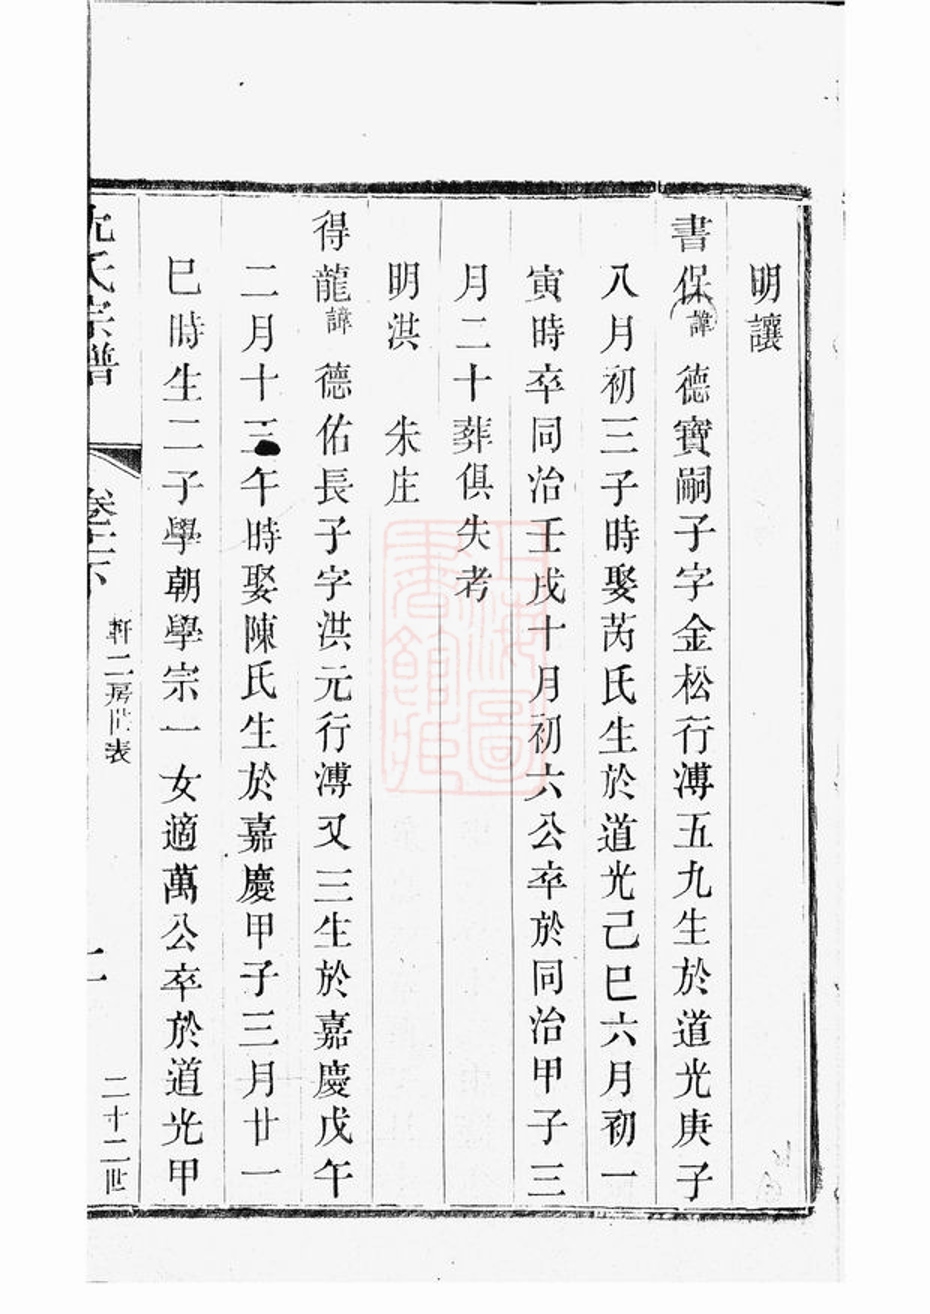 明讓
書保諱 德寶嗣子字金松行溥五九生於道光庚子
八月初三子時娶芮氏生於道光己巳六月初一
寅時卒同治壬戌十月初六公卒於同治甲子三
月二十葬俱失考
明洪 朱庄
得龍諱 德佑長子字洪元行溥又三生於嘉慶戊午
二月十三午時娶陳氏生於嘉慶甲子三月廿一
巳時生二子學朝學宗一女適萬公卒於道光甲
氏宗譜
軒二房世表
二十二世
上海圖書館藏